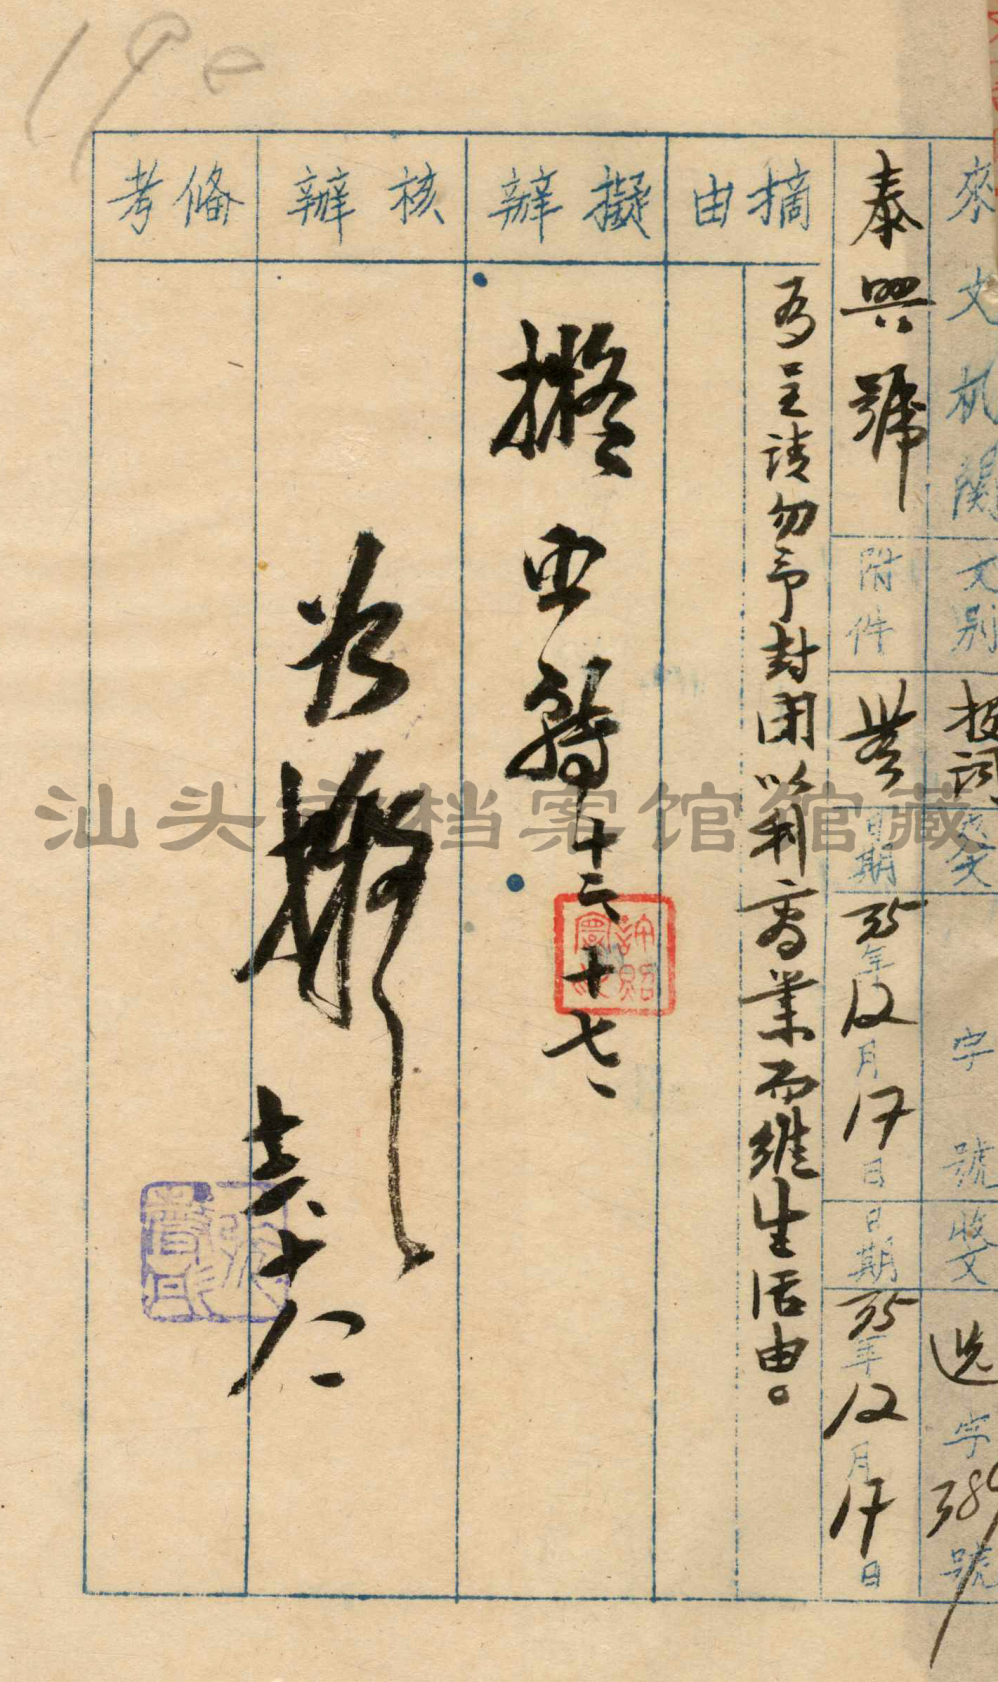 來文机關
泰興號
文别
附件
無
发文
日期
字 號
35年12月17日
收文
日期
字 號
35年12月17日
摘由
为呈请勿予封闭以利商業而維生活由。
擬辦
擬
十二
十七
核辦
十二
十八
備考
190
汕头市档案馆馆藏